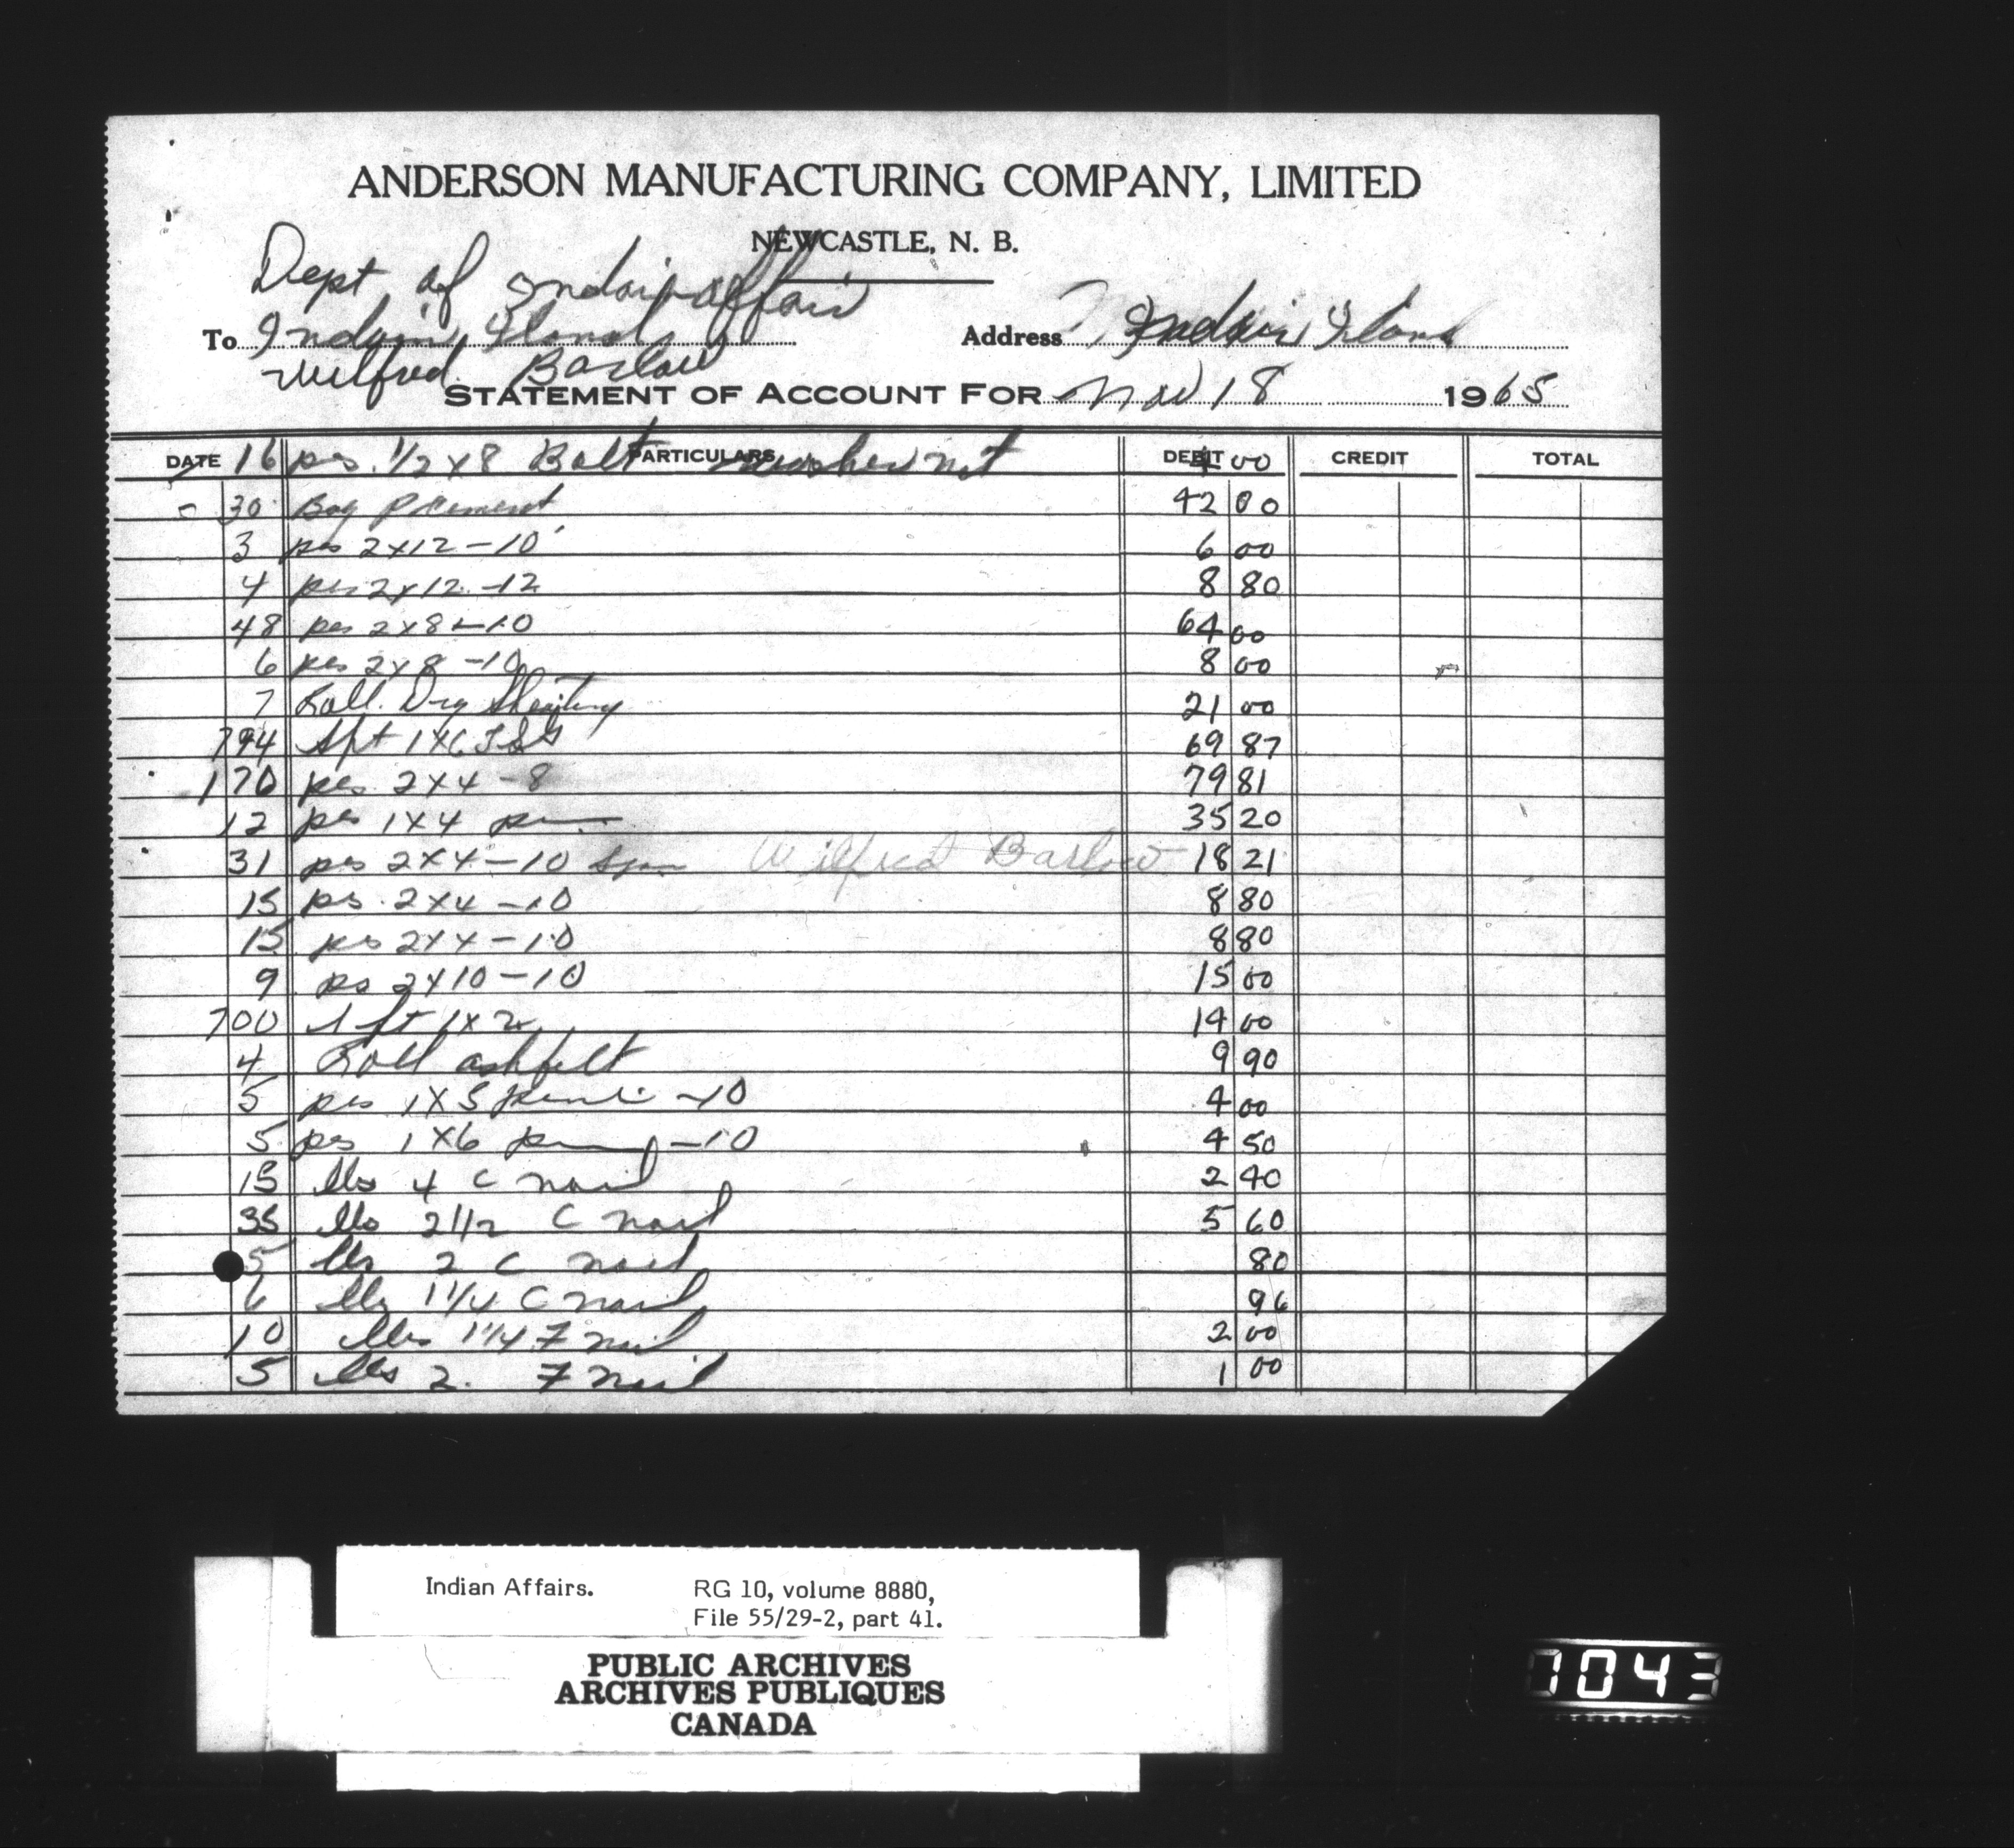 ANDERSON MANUFACTURING COMPANY, LIMITED
NEWCASTLE, N. B.
Dept of Indain Affair
To Indain Iland Address Indain Iland
Wilfred Barlow
STATEMENT OF ACCOUNT FOR Nov 18 1965
DATE PARTICULARS DEBIT CREDIT TOTAL
16 pcs 1/2 x 8 Bolt washer nut 4 00
30 Bag P Cement 42 00
3 pcs 2x12-10' 6 00
4 pcs 2x12-12 8 80
48 pcs 2x8-10 64 00
6 pcs 2x8-10 8 00
7 Roll Dry Sheating 21 00
794 Sft 1x6 T&G 69 87
170 pcs 2x4-8 79 81
12 pcs 1x4 35 20
31 pcs 2x4-10 Wilfred Barlow 18 21
15 pcs 2x4-10 8 80
15 pcs 2x4-10 8 80
9 pcs 2x10-10 15 00
700 ft 1x2 14 00
4 Roll ashfelt 9 90
5 pcs 1x5 -10 4 00
5 pcs 1x6 -10 4 50
15 lbs 4 C nail 2 40
35 lbs 2 1/2 C nail 5 60
5 lbs 2 C nail 80
6 lbs 1 1/4 C nail 96
10 lbs 1 1/4 F nail 2 00
5 lbs 2. F nail 1 00
Indian Affairs. RG 10, volume 8880,
File 55/29-2, part 41.
PUBLIC ARCHIVES
ARCHIVES PUBLIQUES
CANADA
1043